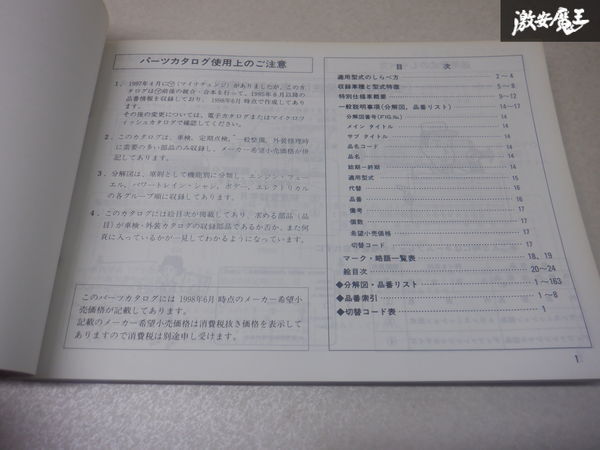 激安魔王
パーツカタログ使用上のご注意
1. 1997年4月にⓂ(マイナチェンジ)がありましたが、このカ
タログはⓂ前後の統合・合本を行って、1985年8月以降の
品番情報を収録しており、1998年6月時点で作成してあり
ます。
その後の変更については、電子カタログまたはマイクロフ
ィッシュカタログで確認してください。
2. このカタログは、車検、定期点検、一般整備、外装修理時
に需要の多い部品のみ収録し、メーカー希望小売価格が併
記してあります。
3. 分解図は、原則として機能別に分類し、エンジン・フュー
エル、パワートレイン・シャシ、ボデー、エレクトリカル
の各グループ順に収録してあります。
4. このカタログには絵目次が掲載してあり、求める部品(品
目)が車検・外装カタログの収録部品であるか否か、また何
頁に入っているかが一見してわかるようになっています。
このパーツカタログには1998年6月時点のメーカー希望小
売価格が記載してあります。
記載のメーカー希望小売価格は消費税抜き価格を表示して
ありますので消費税は別途申し受けます。
目 次
適用型式のしらべ方 2〜4
収録車種と型式特徴 5〜8
特別仕様車概要 9〜12
一般説明事項(分解図、品番リスト) 14〜17
分解図番号(FIG.No) 14
メイン タイトル 14
サブ タイトル 14
品名コード 14
品名 14
始期ー終期 14
適用型式 15
代替 16
品番 16
備考 17
個数 17
希望小売価格 17
切替コード 17
マーク・略語一覧表 18、19
絵目次 20〜24
◆分解図・品番リスト 1〜163
◆品番索引 1〜8
◆切替コード表 1
1